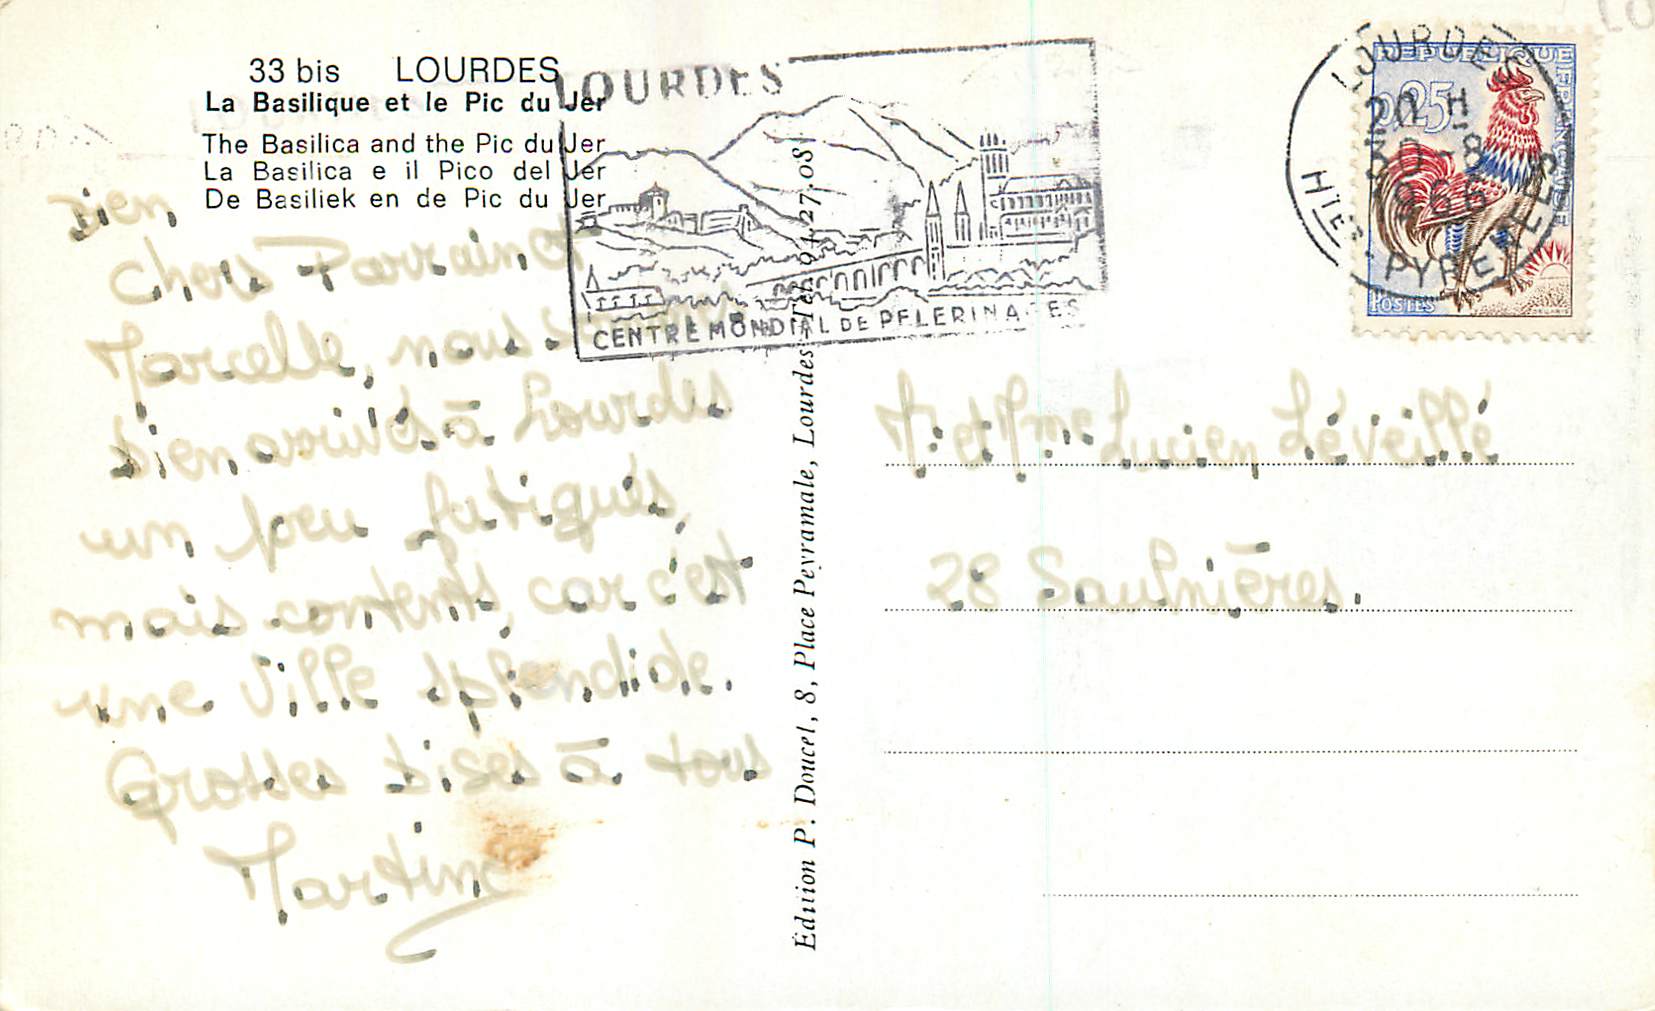 33 bis LOURDES
La Basilique et le Pic du Jer
The Basilica and the Pic du Jer
La Basilica e il Pico del Jer
De Basiliek en de Pic du Jer
Bien
Chers Parrain et
Marcelle, nous
bien arrivés à Lourdes
un peu fatigués,
mais contents, car c'est
une ville splendide.
Grosses bises à tous
Martine
LOURDES
CENTRE MONDIAL DE PELERINAGES
Edition P. Doucet, 8, Place Peyramale, Lourdes - Tél. 94.27.08
LOURDES
20 H
30-8
1966
HTES PYRENEES
REPUBLIQUE FRANÇAISE
0,25
POSTES
M. et Mme Lucien Léveillé
28 Saulnières.